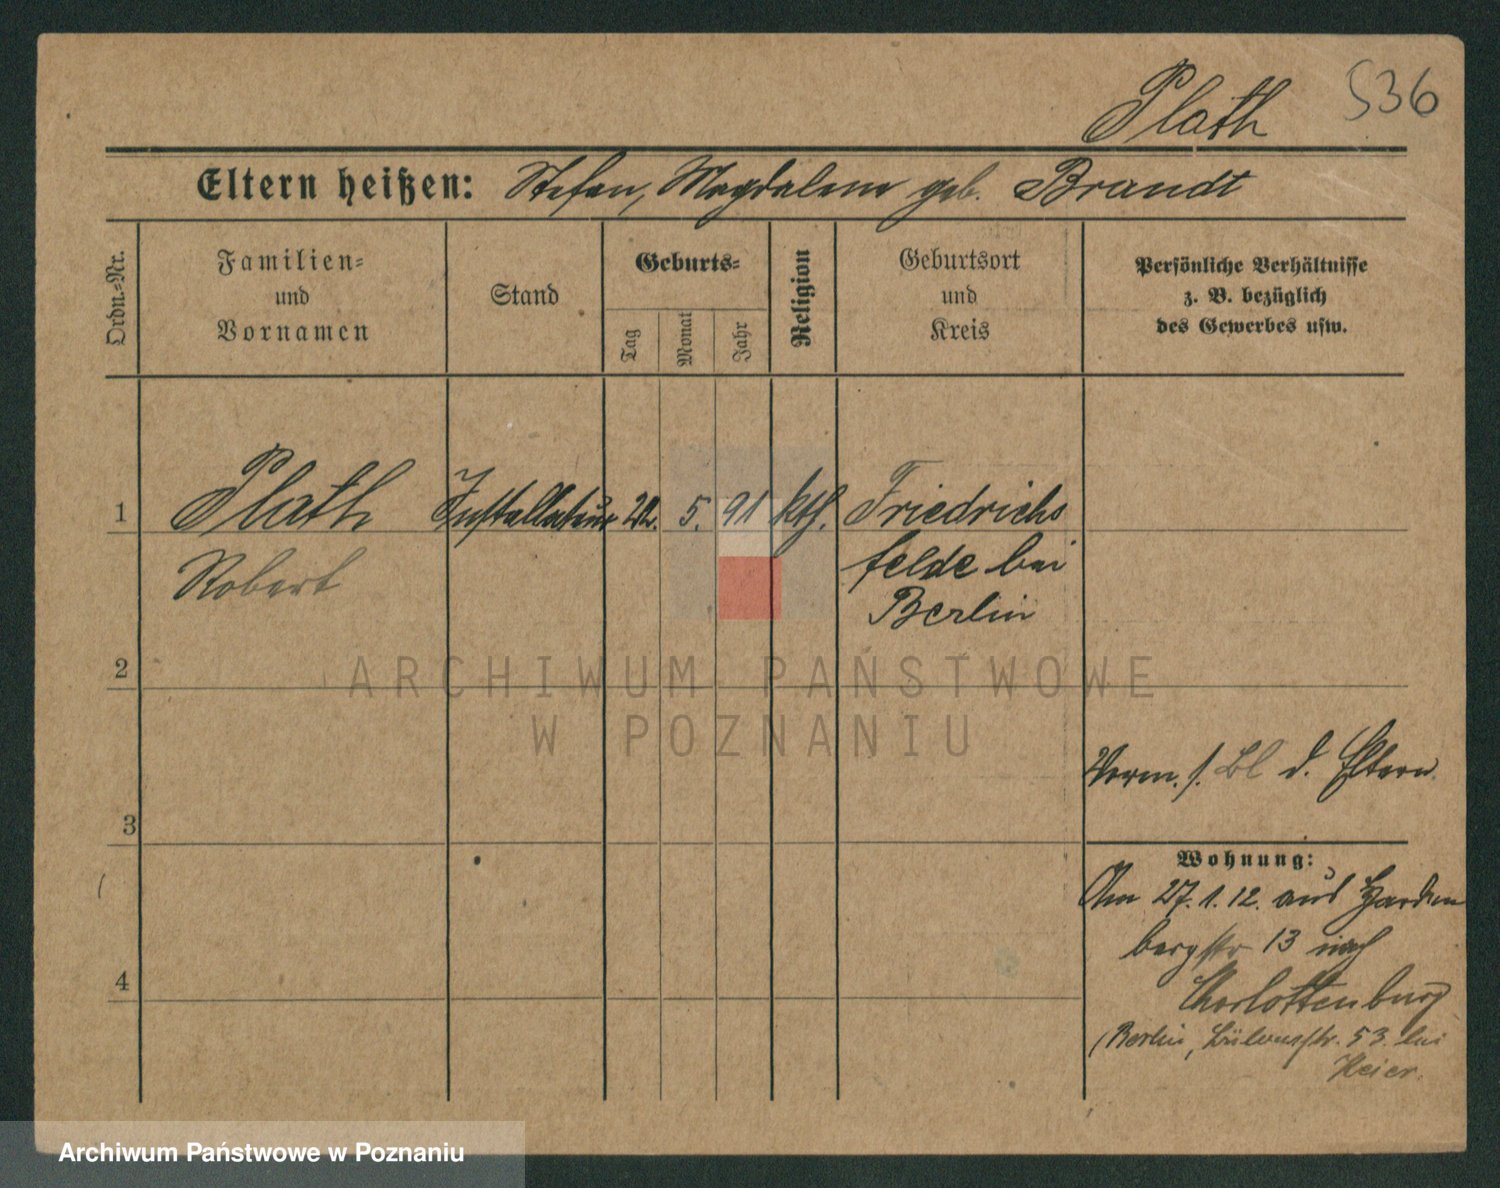 Plath 536
Eltern heißen: Stefan, Magdalena geb. Brandt
Ordn.=Nr.
Familien=
und
Vornamen
Stand
Geburts=
Tag
Monat
Jahr
Religion
Geburtsort
und
Kreis
Persönliche Verhältnisse
z. B. bezüglich
des Gewerbes usw.
1 Plath Installateur 22. 5. 91 kth. Friedrichs
Robert felde bei
Berlin
2
ARCHIWUM PAŃSTWOWE
W POZNANIU
Verm. s. Bl d. Eltern
3
Wohnung:
Am 27.1.12. aus Harden
bergstr 13 nach
Charlottenburg
4
Berlin, 53. bei
Archiwum Państwowe w Poznaniu